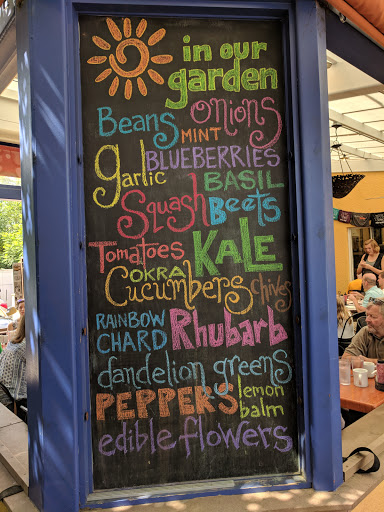 in our
garden
Beans onions
MINT
garlic BLUEBERRIES
BASIL
Squash Beets
Tomatoes KALE
OKRA
Cucumbers chives
RAINBOW
CHARD Rhubarb
dandelion greens
PEPPERS lemon
balm
edible flowers